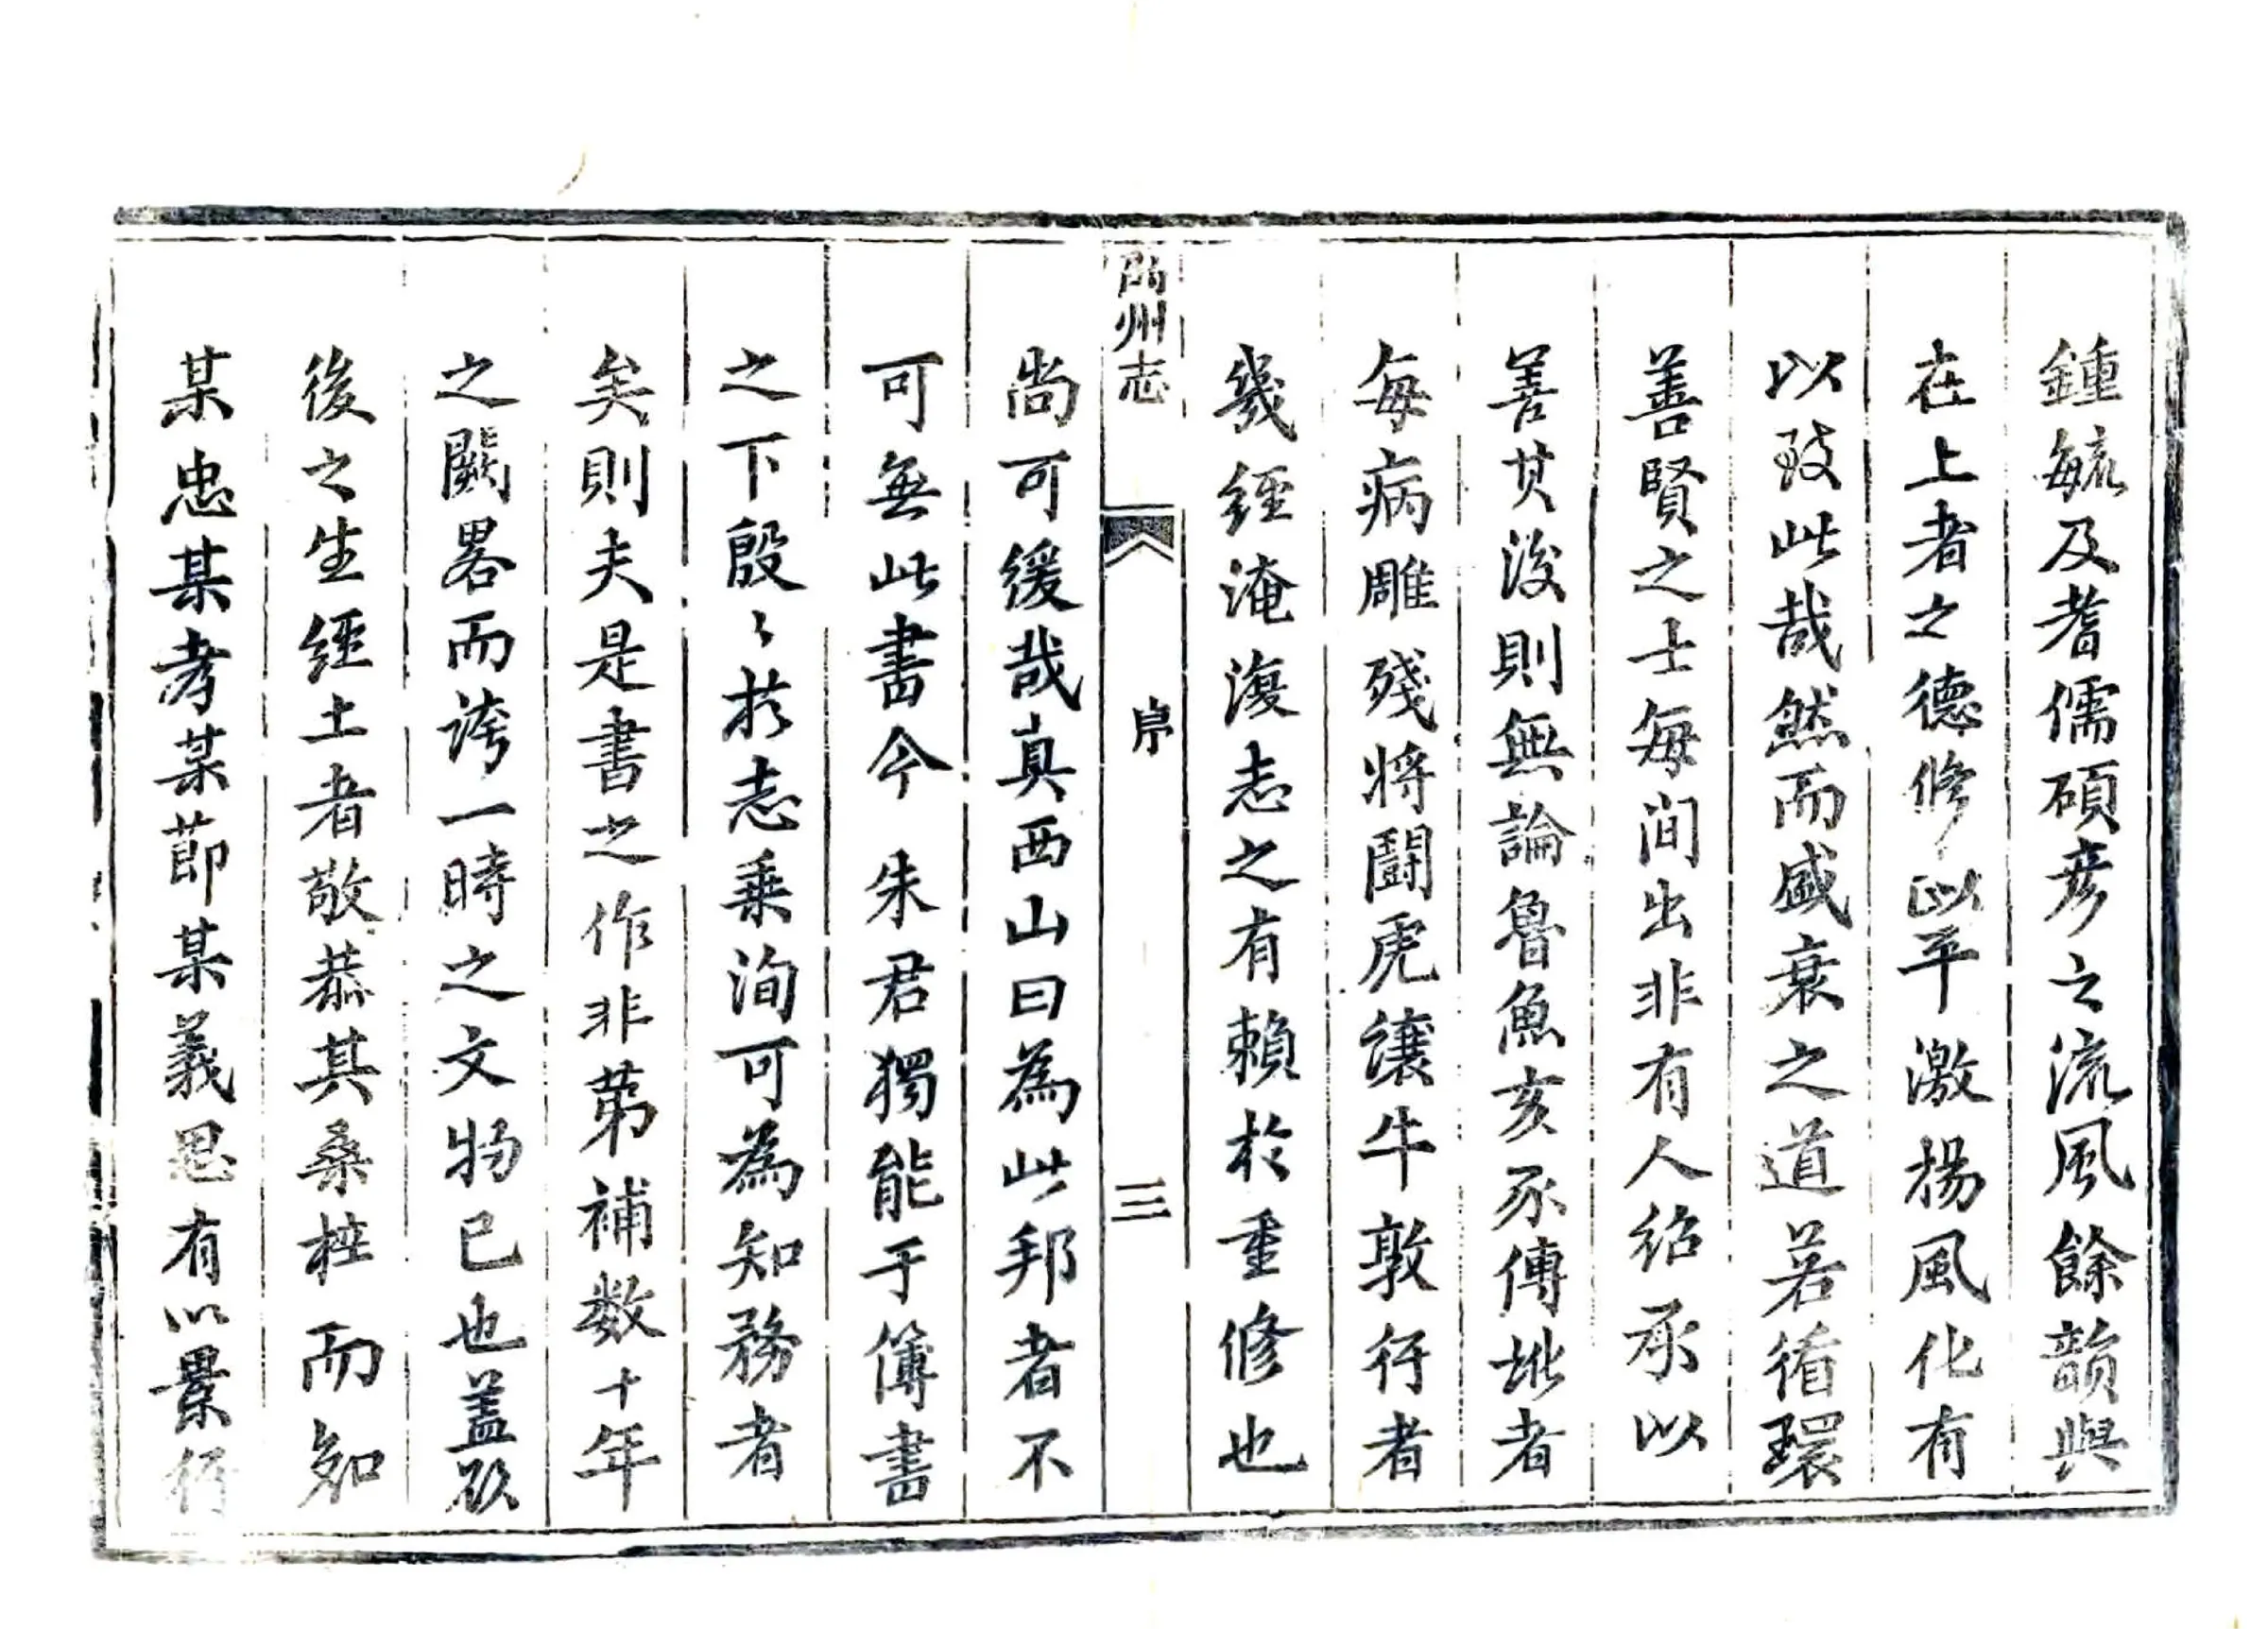 鍾毓及耆儒碩彥之流風餘韻與
在上者之德修政平激揚風化有
以致此哉然而盛衰之道若循環
善賢之士每间出非有人紹承以
善其後則無論魯魚亥豕傳訛者
每病雕殘將鬪虎讓牛敦行者
幾經淹沒志之有賴於重修也
州志
序
三
尚可緩哉真西山曰為此邦者不
可無此書今朱君獨能于簿書
之下殷〻於志乘洵可為知務者
矣則夫是書之作非第補数十年
之闕畧而誇一時之文物已也盖欲
後之生經土者敬恭其桑梓而知
某忠某孝某節某義思有以景行